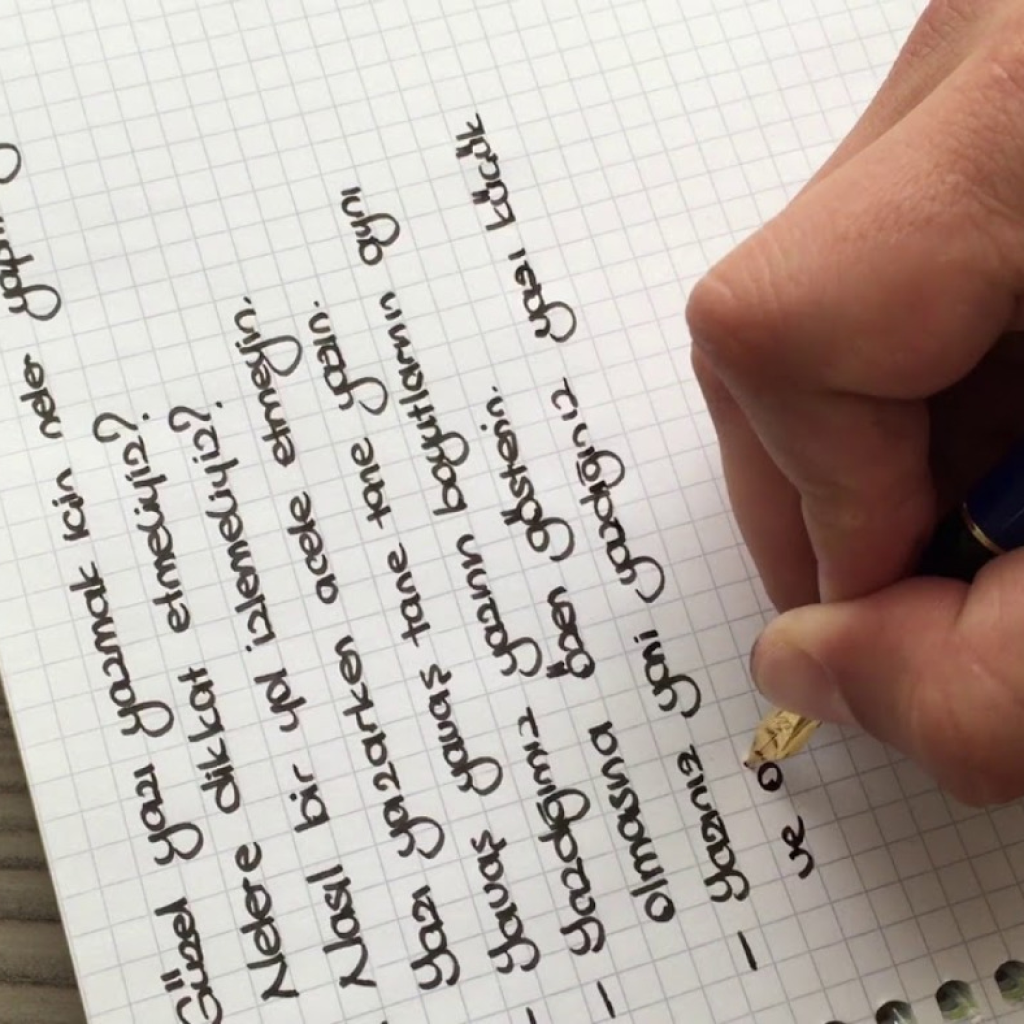 Güzel yazı yazmak için neler
Nelere dikkat etmeliyiz?
Nasıl bir yol izlemeliyiz?
Yazı yazarken acele etmeyin.
Yavaş yavaş tane tane yazın.
- Yazdığınız yazının boyutlarının aynı
olmasına özen gösterin.
- Yazınız yani yazdığınız yazı küçük
ve o